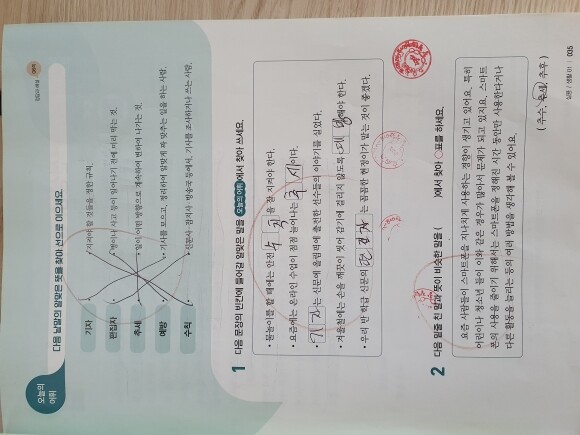 오늘의
어휘
다음 낱말의 알맞은 뜻을 찾아 선으로 이으세요.
기자
편집자
추세
예방
수칙
지켜야 할 것들을 정한 규칙.
병이나 사고 등이 일어나기 전에 미리 막는 것.
일이 어떤 방향으로 계속하여 변하여 나가는 것.
기사를 모으고, 정리하여 알맞게 짜 맞추는 일을 하는 사람.
신문사·잡지사·방송국 등에서, 기사를 조사하거나 쓰는 사람.
1 다음 문장의 빈칸에 들어갈 알맞은 말을 오늘의 어휘 에서 찾아 쓰세요.
• 물놀이를 할 때에는 안전 수칙 을 잘 지켜야 한다.
• 요즘에는 온라인 수업이 점점 늘어나는 추세 이다.
• 기자 는 신문에 올림픽에 출전한 선수들의 이야기를 실었다.
• 겨울철에는 손을 깨끗이 씻어 감기에 걸리지 않도록 예방 해야 한다.
• 우리 반 학급 신문의 편집자 는 꼼꼼한 현정이가 맡는 것이 좋겠다.
2 다음 밑줄 친 말과 뜻이 비슷한 말을 ( )에서 찾아 ○표를 하세요.
요즘 사람들이 스마트폰을 지나치게 사용하는 경향이 생기고 있어요. 특히
어린이나 청소년 들이 이와 같은 경우가 많아서 문제가 되고 있지요. 스마트
폰의 사용을 줄이기 위해서는 스마트폰을 정해진 시간 동안만 사용한다거나
다른 활동을 늘리는 등의 여러 방법을 생각해 볼 수 있어요.
( 추수, 추세, 추후 )
035